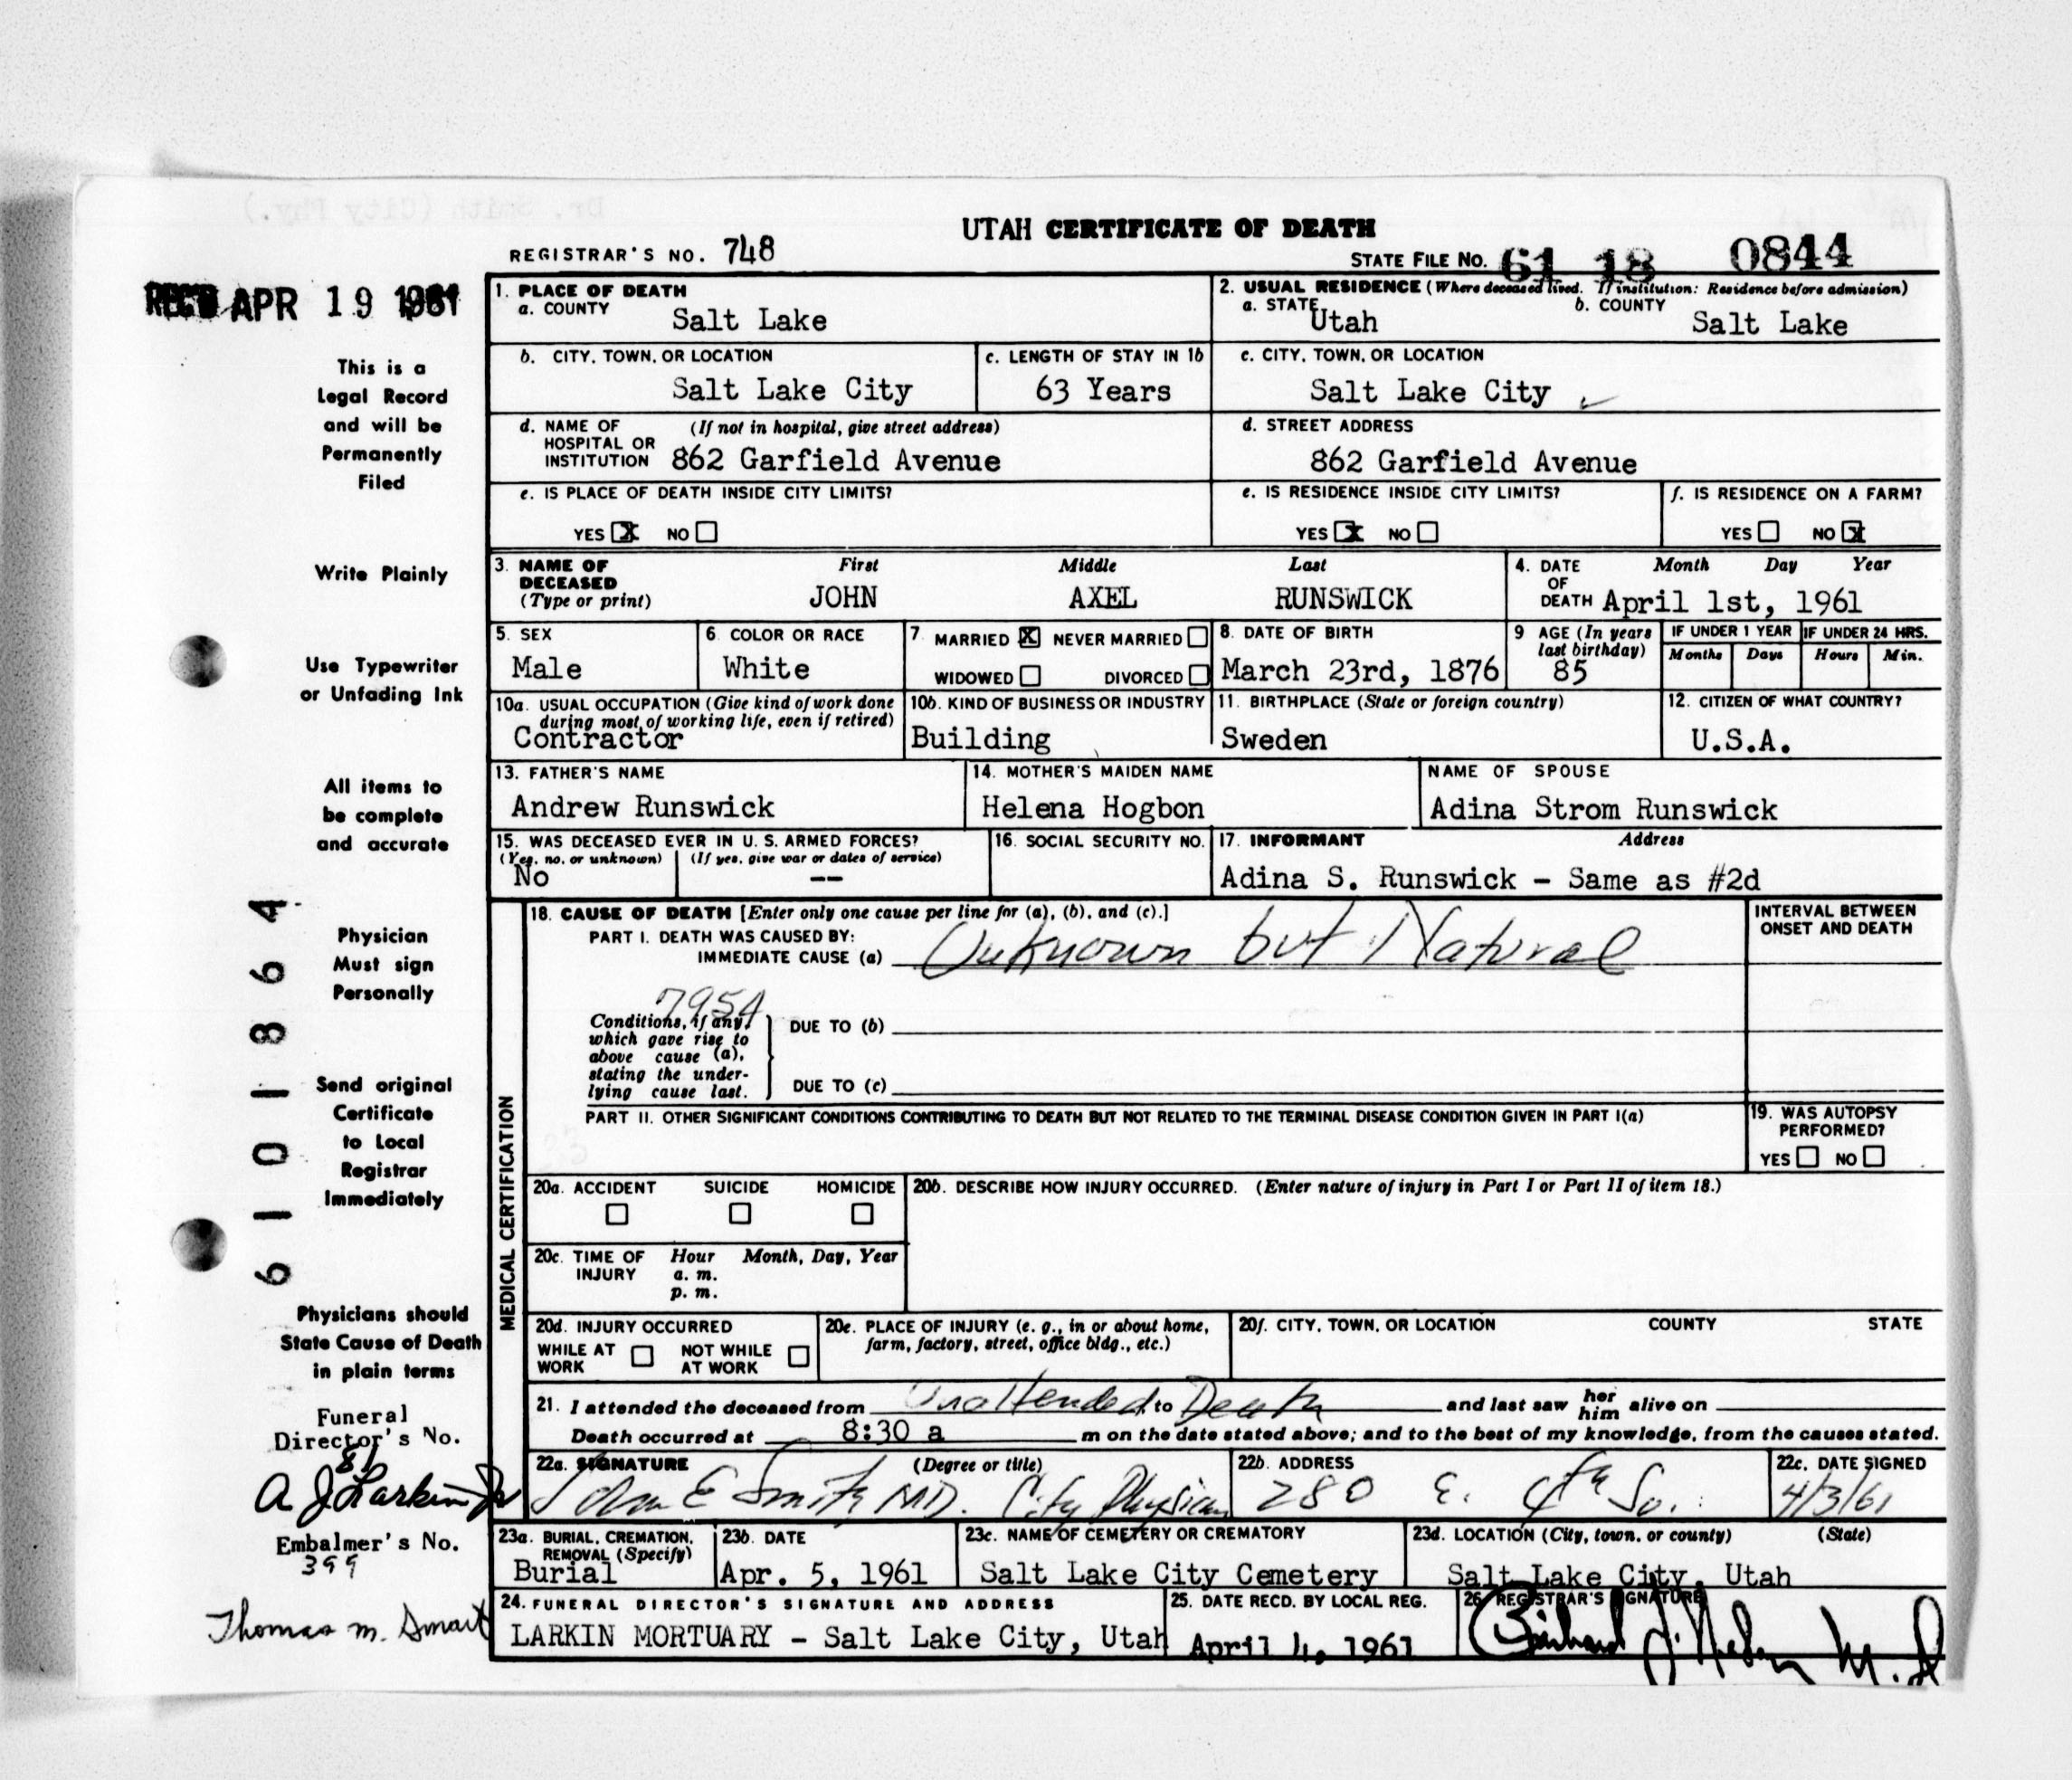 Dr. Smith (City Phy.)
UTAH CERTIFICATE OF DEATH
REGISTRAR'S NO. 748
STATE FILE NO. 61 18 0844
REC'D APR 19 1961
This is a
Legal Record
and will be
Permanently
Filed
Write Plainly
Use Typewriter
or Unfading Ink
All items to
be complete
and accurate
Physician
Must sign
Personally
Send original
Certificate
to Local
Registrar
Immediately
Physicians should
State Cause of Death
in plain terms
6101864
Funeral
Director's No.
81
A J Larkin Jr
Embalmer's No.
399
Thomas M. Smart
1. PLACE OF DEATH
a. COUNTY Salt Lake
2. USUAL RESIDENCE (Where deceased lived. If institution: Residence before admission)
a. STATE Utah b. COUNTY Salt Lake
b. CITY, TOWN, OR LOCATION Salt Lake City
c. LENGTH OF STAY IN 1b 63 Years
c. CITY, TOWN, OR LOCATION Salt Lake City
d. NAME OF HOSPITAL OR INSTITUTION (If not in hospital, give street address) 862 Garfield Avenue
d. STREET ADDRESS 862 Garfield Avenue
e. IS PLACE OF DEATH INSIDE CITY LIMITS?
YES X NO
e. IS RESIDENCE INSIDE CITY LIMITS?
YES X NO
f. IS RESIDENCE ON A FARM?
YES NO X
3. NAME OF DECEASED (Type or print) First Middle Last
JOHN AXEL RUNSWICK
4. DATE OF DEATH Month Day Year
April 1st, 1961
5. SEX Male
6. COLOR OR RACE White
7. MARRIED X NEVER MARRIED
WIDOWED DIVORCED
8. DATE OF BIRTH March 23rd, 1876
9 AGE (In years last birthday) 85
IF UNDER 1 YEAR Months Days
IF UNDER 24 HRS. Hours Min.
10a. USUAL OCCUPATION (Give kind of work done during most of working life, even if retired)
Contractor
10b. KIND OF BUSINESS OR INDUSTRY
Building
11. BIRTHPLACE (State or foreign country)
Sweden
12. CITIZEN OF WHAT COUNTRY?
U.S.A.
13. FATHER'S NAME
Andrew Runswick
14. MOTHER'S MAIDEN NAME
Helena Hogbon
NAME OF SPOUSE
Adina Strom Runswick
15. WAS DECEASED EVER IN U. S. ARMED FORCES?
(Yes, no, or unknown) (If yes, give war or dates of service)
No --
16. SOCIAL SECURITY NO.
17. INFORMANT Address
Adina S. Runswick - Same as #2d
MEDICAL CERTIFICATION
18. CAUSE OF DEATH [Enter only one cause per line for (a), (b), and (c).]
PART I. DEATH WAS CAUSED BY:
IMMEDIATE CAUSE (a) Unknown but Natural
INTERVAL BETWEEN ONSET AND DEATH
795A
Conditions, if any, which gave rise to above cause (a), stating the underlying cause last.
DUE TO (b)
DUE TO (c)
PART II. OTHER SIGNIFICANT CONDITIONS CONTRIBUTING TO DEATH BUT NOT RELATED TO THE TERMINAL DISEASE CONDITION GIVEN IN PART I(a)
19. WAS AUTOPSY PERFORMED?
YES NO
20a. ACCIDENT SUICIDE HOMICIDE
20b. DESCRIBE HOW INJURY OCCURRED. (Enter nature of injury in Part I or Part II of item 18.)
20c. TIME OF INJURY Hour a. m. p. m. Month, Day, Year
20d. INJURY OCCURRED
WHILE AT WORK NOT WHILE AT WORK
20e. PLACE OF INJURY (e. g., in or about home, farm, factory, street, office bldg., etc.)
20f. CITY, TOWN, OR LOCATION COUNTY STATE
21. I attended the deceased from Unattended to Death and last saw her him alive on
Death occurred at 8:30 a m on the date stated above; and to the best of my knowledge, from the causes stated.
22a. SIGNATURE (Degree or title)
John E Smith MD. City Physician
22b. ADDRESS
280 E. 4th So.
22c. DATE SIGNED
4/3/61
23a. BURIAL, CREMATION, REMOVAL (Specify)
Burial
23b. DATE
Apr. 5, 1961
23c. NAME OF CEMETERY OR CREMATORY
Salt Lake City Cemetery
23d. LOCATION (City, town, or county) (State)
Salt Lake City, Utah
24. FUNERAL DIRECTOR'S SIGNATURE AND ADDRESS
LARKIN MORTUARY - Salt Lake City, Utah
25. DATE RECD. BY LOCAL REG.
April 4, 1961
26. REGISTRAR'S SIGNATURE